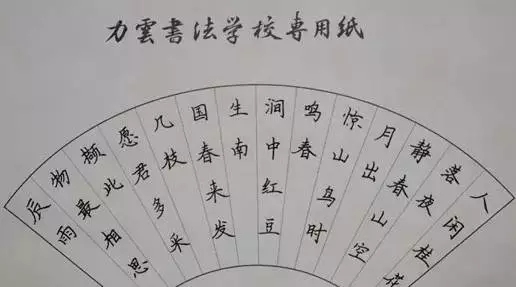 力雲書法学校専用纸
人闲桂花
落夜
静春山空
月出
惊山鸟时
鸣春
涧中红豆
生南
国春来发
几枝
愿君多采
撷此
物最相思
辰雨